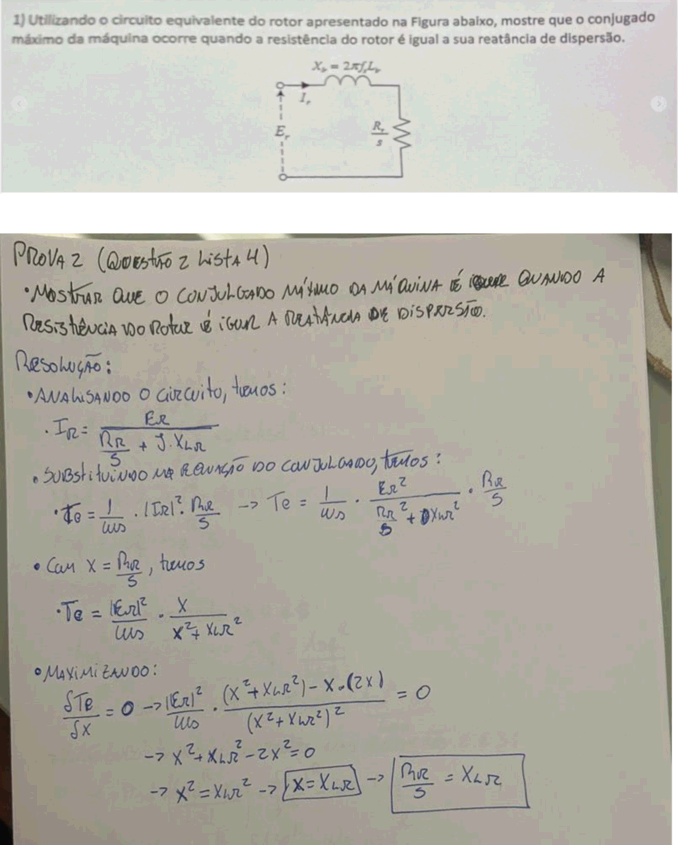 1) Utilizando o circuito equivalente do rotor apresentado na Figura abaixo, mostre que o conjugado
máximo da máquina ocorre quando a resistência do rotor é igual a sua reatância de dispersão.
Xᵣ = 2πfᵣLᵣ
Iᵣ
Eᵣ
Rᵣ/s
PROVA 2 (QUESTÃO 2 LISTA 4)
• MOSTRAR QUE O CONJULGADO MÁXIMO DA MÁQUINA É QUANDO A
RESISTÊNCIA DO ROTOR É IGUAL A REATÂNCIA DE DISPERSÃO.
RESOLUÇÃO:
• ANALISANDO O CIRCUITO, TEMOS:
• IR = ER / (RR/S + J.XLR)
• SUBSTITUINDO NA EQUAÇÃO DO CONJULGADO, TEMOS:
• Te = 1/ωs . |IR|² . RR/S → Te = 1/ωs . ER² / (RR²/S + XLR²) . RR/S
• COM X = RR/S, TEMOS
• Te = |ER|²/ωs . X / (X² + XLR²)
• MAXIMIZANDO:
δTe/δX = 0 → |ER|²/ωs . ((X² + XLR²) - X.(2X)) / (X² + XLR²)² = 0
→ X² + XLR² - 2X² = 0
→ X² = XLR² → X = XLR → RR/S = XLR